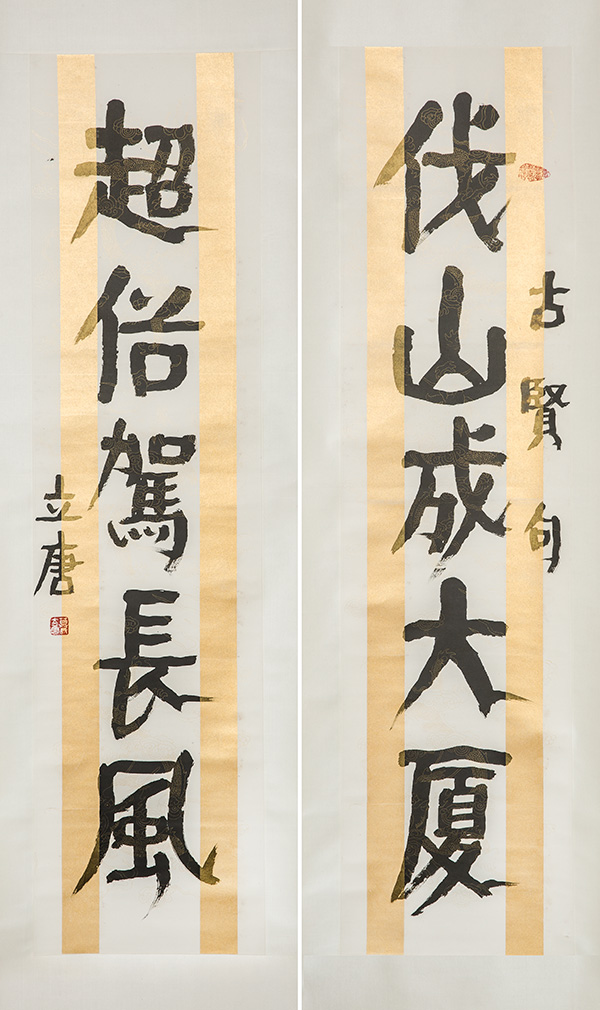 伐山成大厦
古賢句
超俗駕長風
立唐